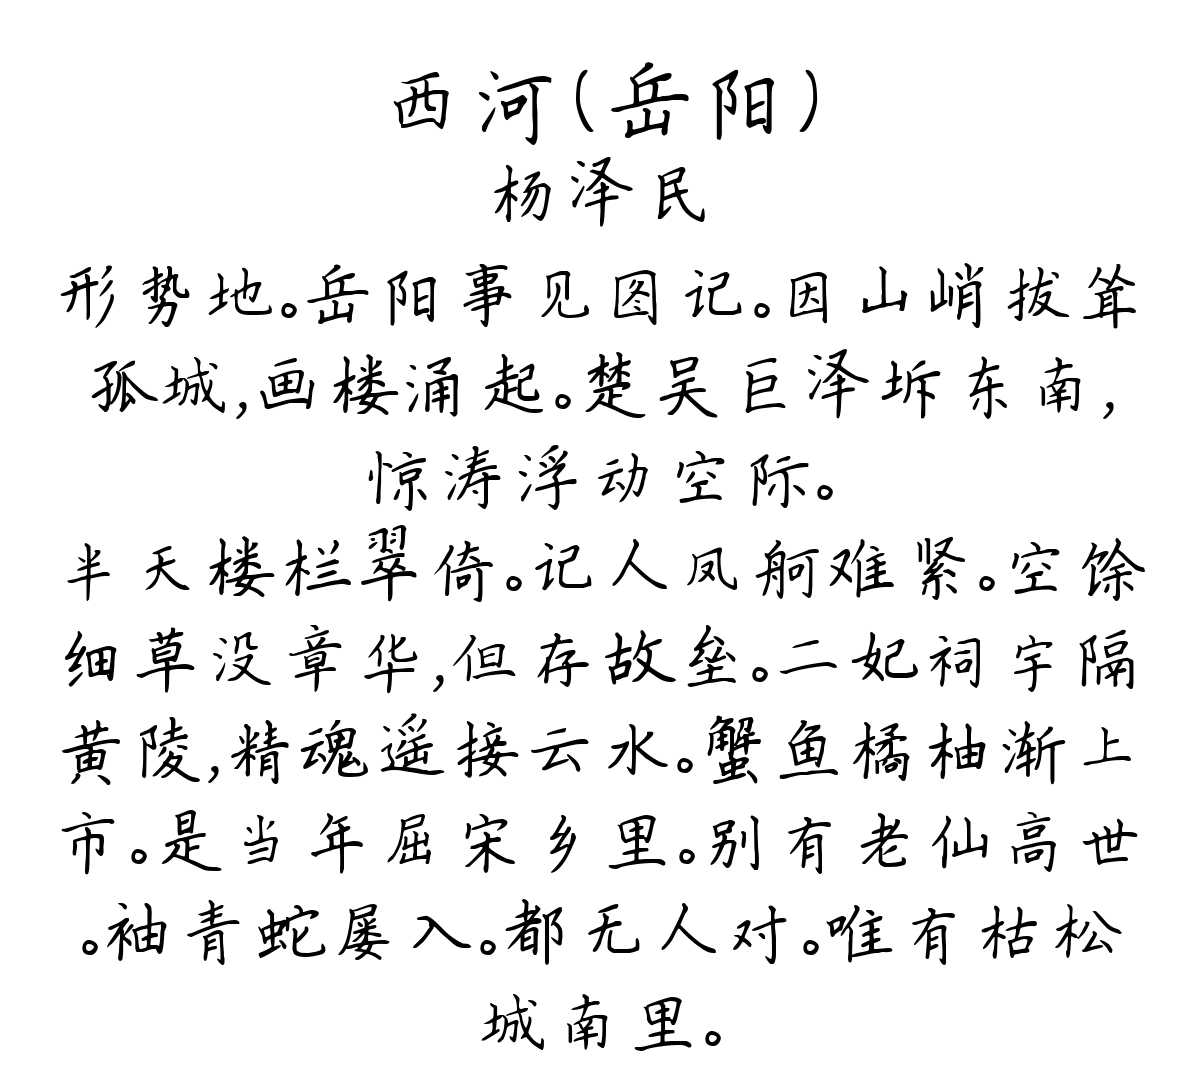 西河(岳阳)
杨泽民
形势地。岳阳事见图记。因山峭拔耸
孤城,画楼涌起。楚吴巨泽坼东南,
惊涛浮动空际。
半天楼栏翠倚。记人凤舸难紧。空馀
细草没章华,但存故垒。二妃祠宇隔
黄陵,精魂遥接云水。蟹鱼橘柚渐上
市。是当年屈宋乡里。别有老仙高世
。袖青蛇屡入。都无人对。唯有枯松
城南里。